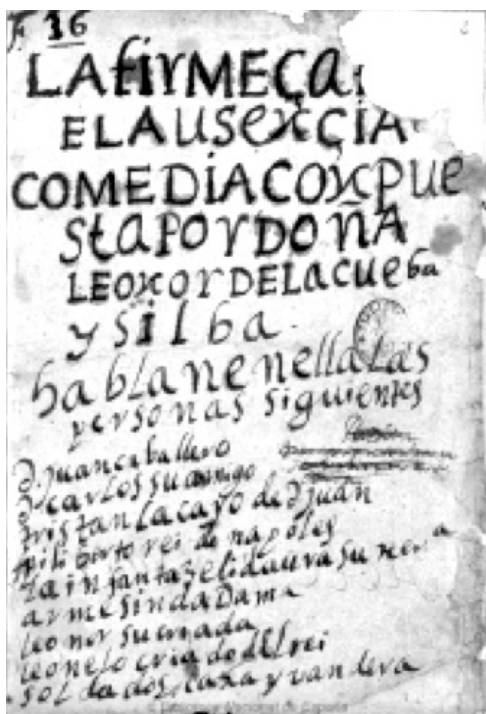 F. 16
LA firMEÇA
E LA USENÇIA
COMEDIA CONPUE
StA POR DOÑA
LEONOR DE LA CUEba
y silba
hablan en ella las
personas siguientes
d. juan caballero
d. carlos su amigo
tristan lacayo de d juan
filiberto rei de napoles
la infanta celidaura su
armesinda Dama
leonor su criada
leonelo criado del rei
soldados, caxa y vandera
Biblioteca Nacional de España